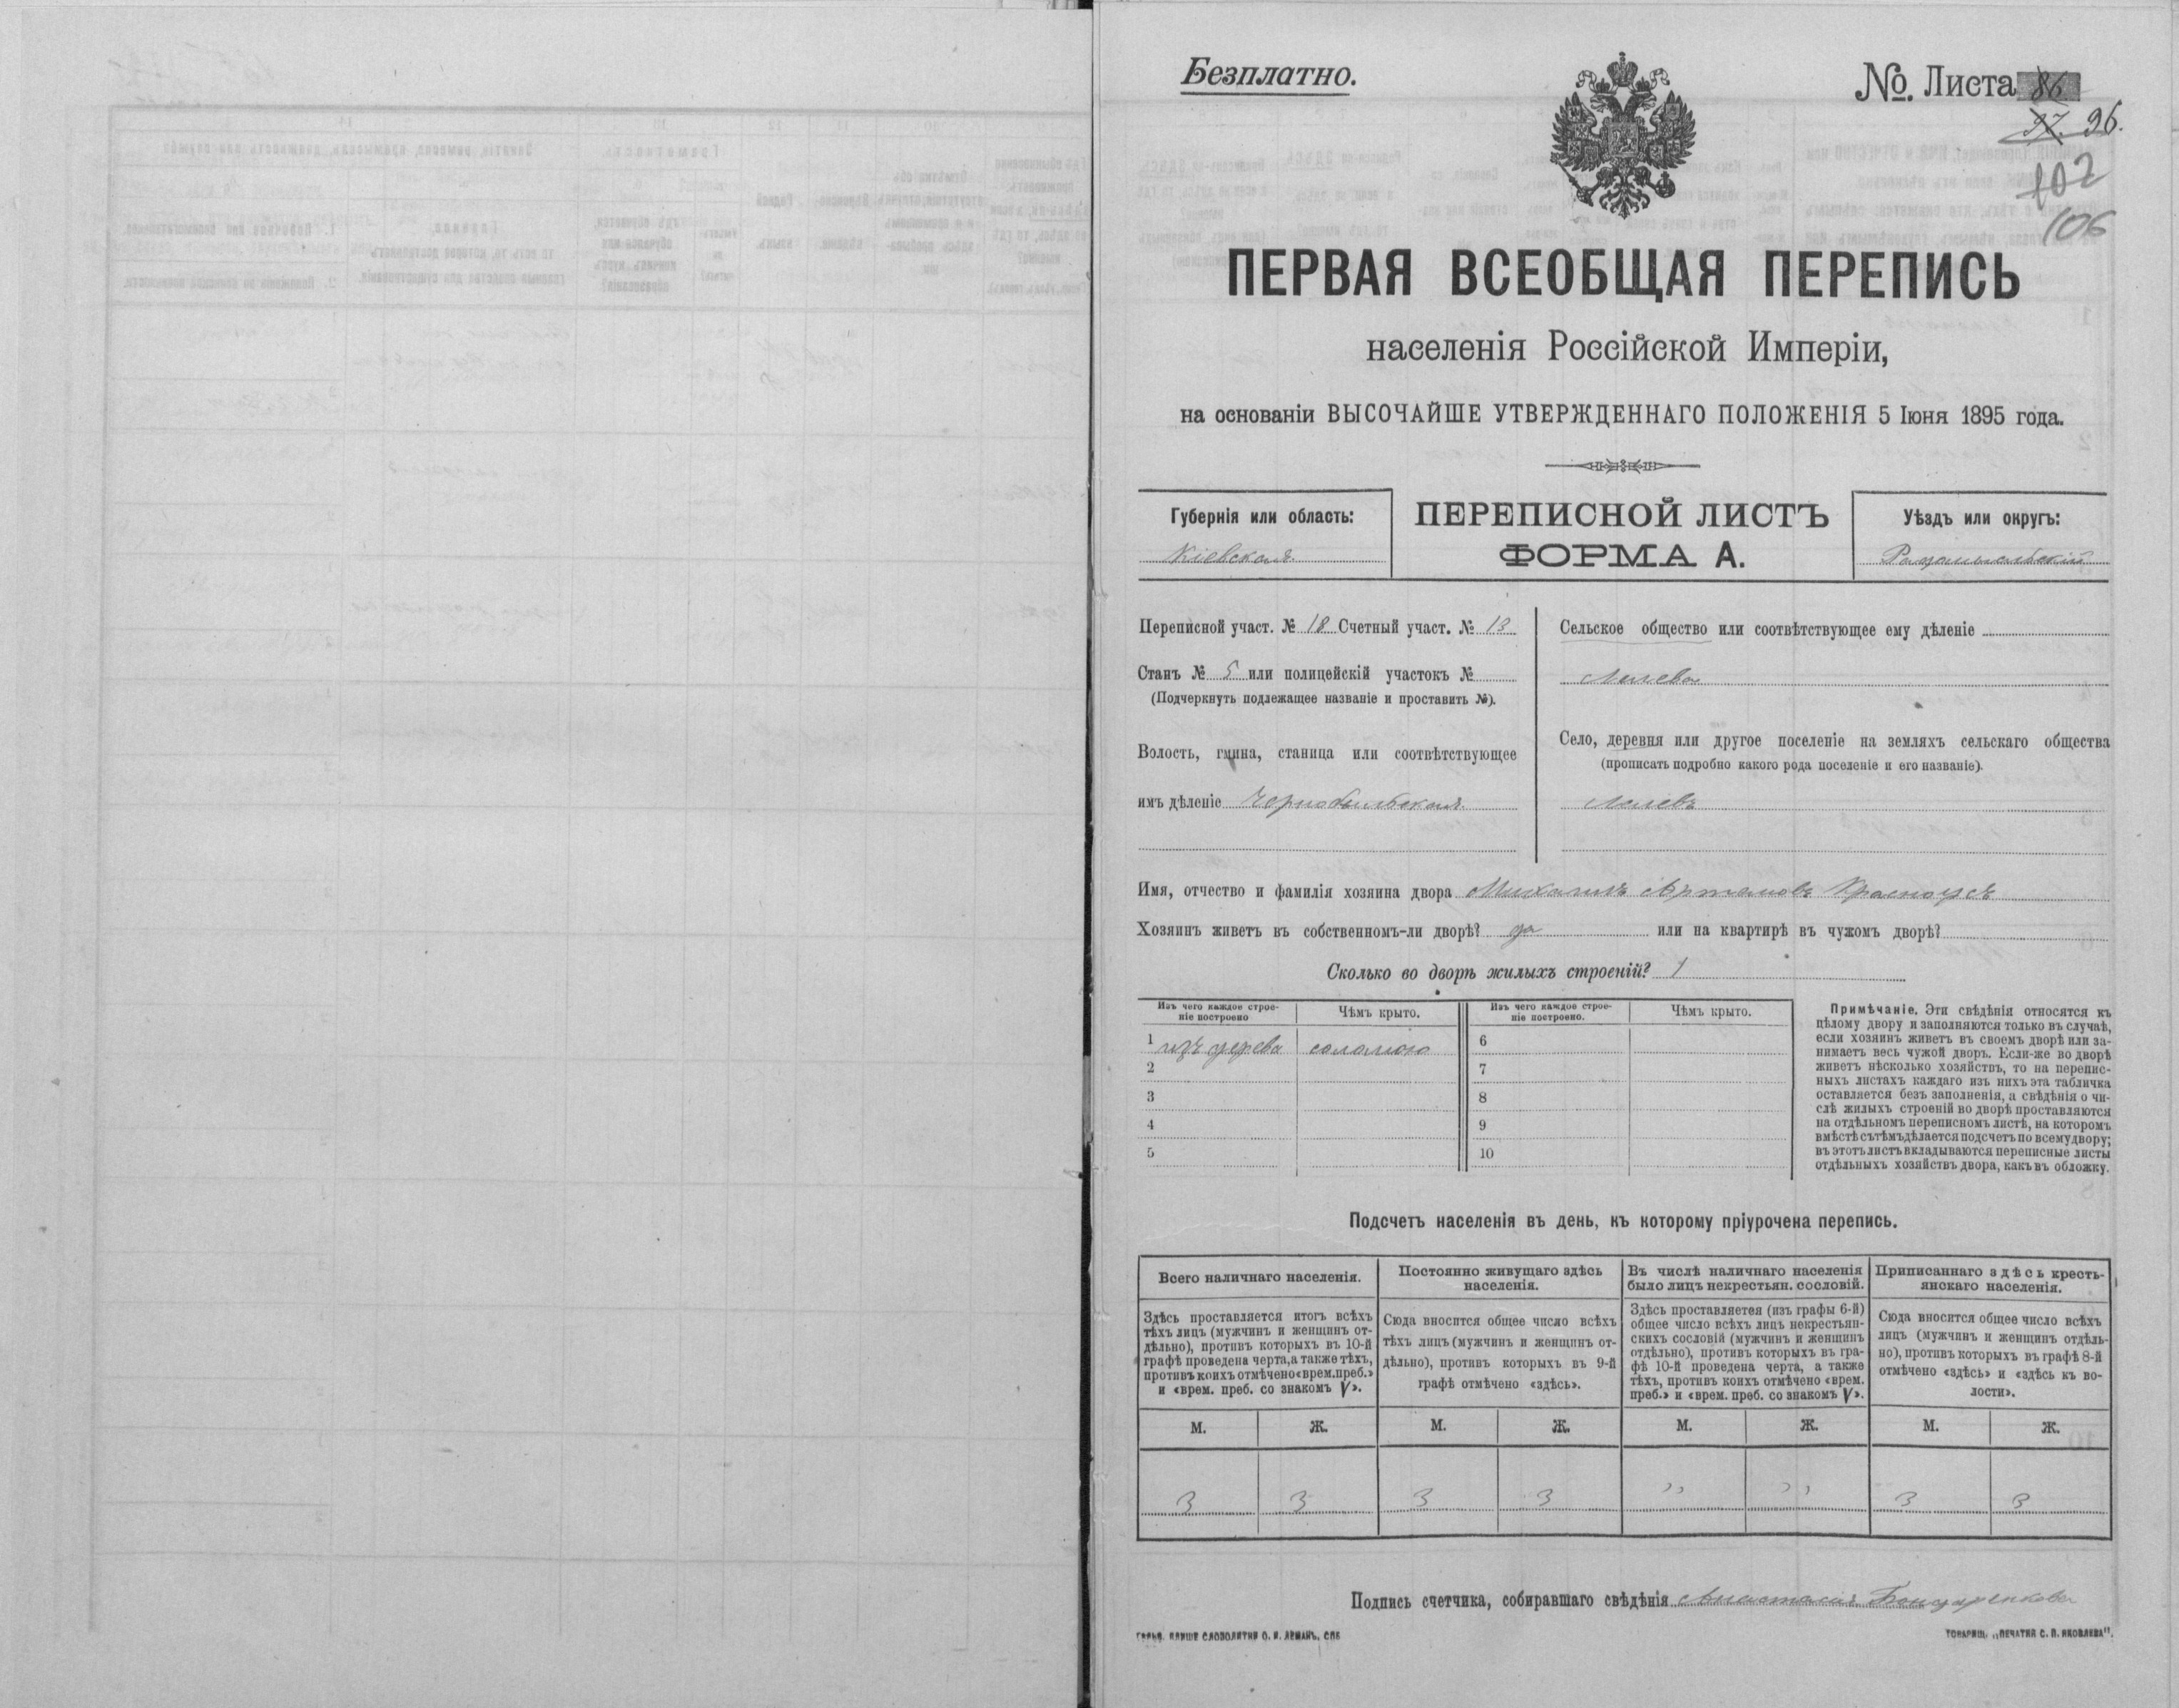 Безплатно.
№. Листа 86
97. 96.
102
106
ПЕРВАЯ ВСЕОБЩАЯ ПЕРЕПИСЬ
населенія Россійской Имперіи,
на основаніи ВЫСОЧАЙШЕ УТВЕРЖДЕННАГО ПОЛОЖЕНІЯ 5 Іюня 1895 года.
Губернія или область:
Кіевская
ПЕРЕПИСНОЙ ЛИСТЪ
ФОРМА А.
Уѣздъ или округъ:
Радомысльскій
Переписной участ. № 18 Счетный участ. № 13
Станъ № 5 или полицейскій участокъ №
(Подчеркнуть подлежащее названіе и проставить №).
Волость, гмина, станица или соотвѣтствующее
имъ дѣленіе Чернобыльская
Сельское общество или соотвѣтствующее ему дѣленіе
Село, деревня или другое поселеніе на земляхъ сельскаго общества
(прописать подробно какого рода поселеніе и его названіе).
Имя, отчество и фамилія хозяина двора Михаилъ Артемовъ Красноусъ
Хозяинъ живетъ въ собственномъ-ли дворѣ? да или на квартирѣ въ чужомъ дворѣ?
Сколько во дворѣ жилыхъ строеній? 1
Изъ чего каждое строе-
ніе построено
Чѣмъ крыто.
Изъ чего каждое строе-
ніе построено.
Чѣмъ крыто.
1 изъ дерева соломою 6
2 7
3 8
4 9
5 10
Примѣчаніе. Эти свѣдѣнія относятся къ
цѣлому двору и заполняются только въ случаѣ,
если хозяинъ живетъ въ своемъ дворѣ или за-
нимаетъ весь чужой дворъ. Если-же во дворѣ
живетъ нѣсколько хозяйствъ, то на перепис-
ныхъ листахъ каждаго изъ нихъ эта табличка
оставляется безъ заполненія, а свѣдѣнія о чи-
слѣ жилыхъ строеній во дворѣ проставляются
на отдѣльномъ переписномъ листѣ, на которомъ
вмѣстѣ съ тѣмъ дѣлается подсчетъ по всему двору;
въ этотъ листъ вкладываются переписные листы
отдѣльныхъ хозяйствъ двора, какъ въ обложку.
Подсчетъ населенія въ день, къ которому пріурочена перепись.
Всего наличнаго населенія.
Здѣсь проставляется итогъ всѣхъ
тѣхъ лицъ (мужчинъ и женщинъ от-
дѣльно), противъ которыхъ въ 10-й
графѣ проведена черта, а также тѣхъ,
противъ коихъ отмѣчено «врем. преб.»
и «врем. преб. со знакомъ V».
Постоянно живущаго здѣсь
населенія.
Сюда вносится общее число всѣхъ
тѣхъ лицъ (мужчинъ и женщинъ от-
дѣльно), противъ которыхъ въ 9-й
графѣ отмѣчено «здѣсь».
Въ числѣ наличнаго населенія
было лицъ некрестьян. сословій.
Здѣсь проставляется (изъ графы 6-й)
общее число всѣхъ лицъ некрестьян-
скихъ сословій (мужчинъ и женщинъ
отдѣльно), противъ которыхъ въ гра-
фѣ 10-й проведена черта, а также
тѣхъ, противъ коихъ отмѣчено «врем.
преб.» и «врем. преб. со знакомъ V».
Приписаннаго здѣсь кресть-
янскаго населенія.
Сюда вносится общее число всѣхъ
лицъ (мужчинъ и женщинъ отдѣль-
но), противъ которыхъ въ графѣ 8-й
отмѣчено «здѣсь» и «здѣсь къ во-
лости».
М. Ж. М. Ж. М. Ж. М. Ж.
3 3 3 3 " " 3 3
Подпись счетчика, собиравшаго свѣдѣнія Анастасія Бондаренкова
ТОВАРИЩ. „ПЕЧАТНЯ С. П. ЯКОВЛЕВА".